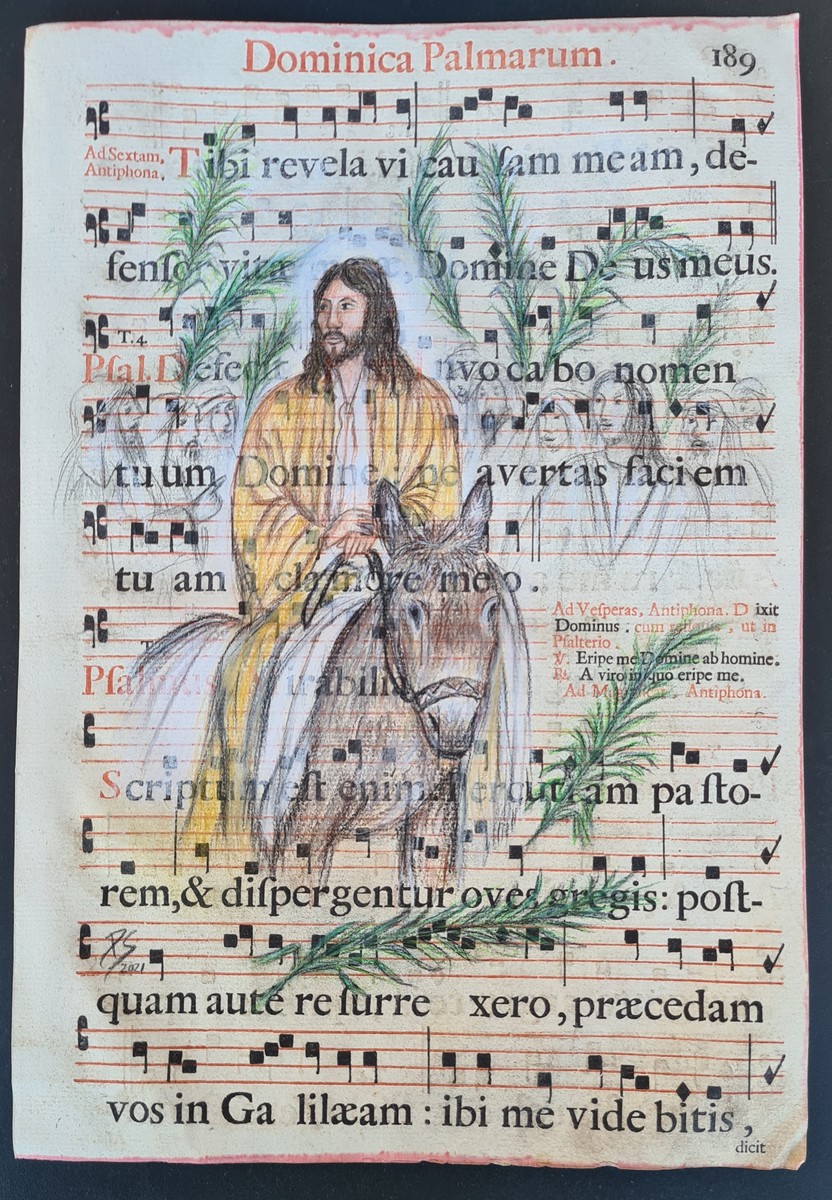 Dominica Palmarum. 189
Ad Sextam,
Antiphona. Tibi revela vi cau ſam meam, de-
fenſor vitæ Domine De us meus.
T.4
Pſal. Defec nvoca bo nomen
tuum Domine: ne avertas faciem
tu am à clamore meo.
Ad Veſperas, Antiphona. D ixit
Dominus. cum reliquis, ut in
Pſalterio.
℣. Eripe me Domine ab homine.
℟. A viro iniquo eripe me.
Ad Magnificat, Antiphona.
T
Pſalmus Mirabilia
Scriptum eſt enim: Percutiam paſto-
rem, & diſpergentur oves gregis: poſt-
quam autē reſurre xero, præcedam
RS
2021
vos in Ga lilæam: ibi me vide bitis,
dicit